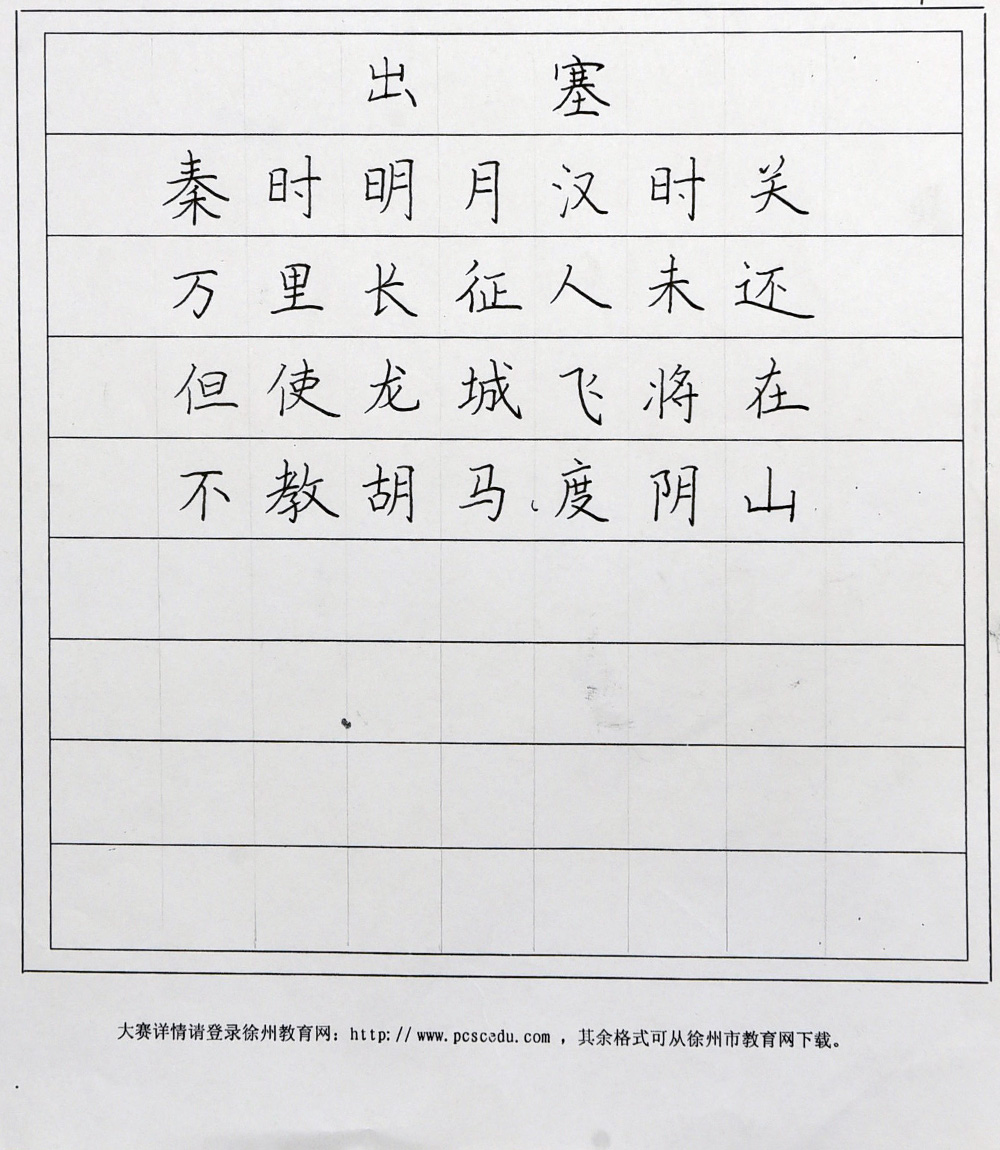 出 塞
秦时明月汉时关
万里长征人未还
但使龙城飞将在
不教胡马度阴山
大赛详情请登录徐州教育网：http://www.pcscedu.com，其余格式可从徐州市教育网下载。